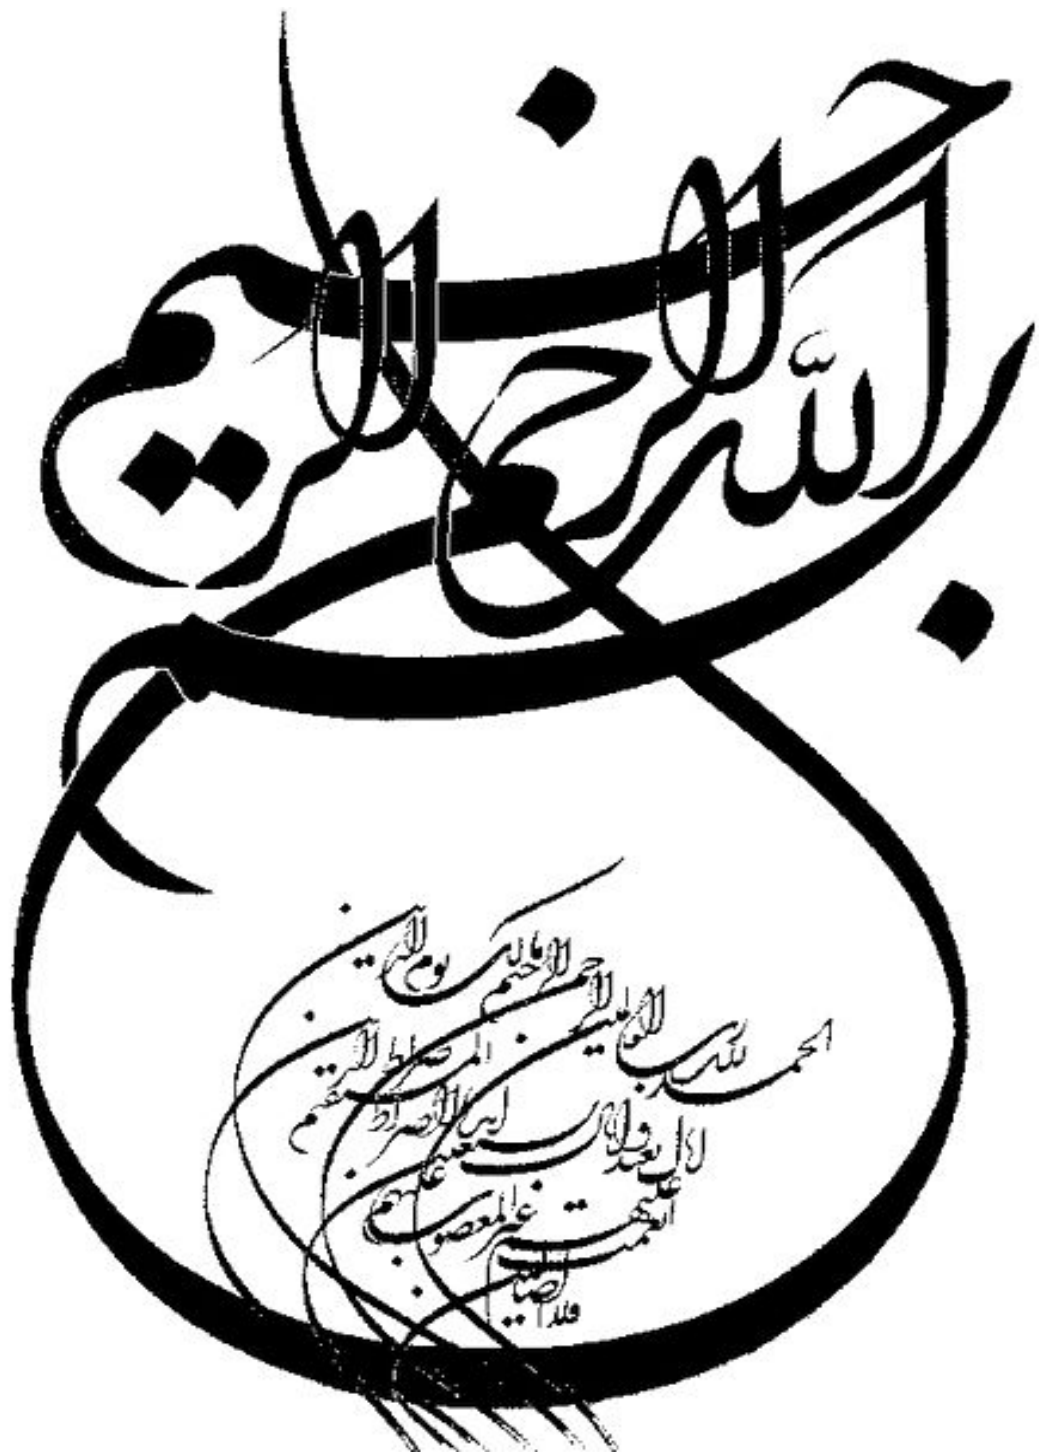 بسم الله الرحمن الرحيم
الحمد لله رب العالمين
الرحمن الرحيم مالك يوم الدين
اياك نعبد واياك نستعين
اهدنا الصراط المستقيم
صراط الذين
انعمت عليهم غير المغضوب عليهم
ولا الضالين